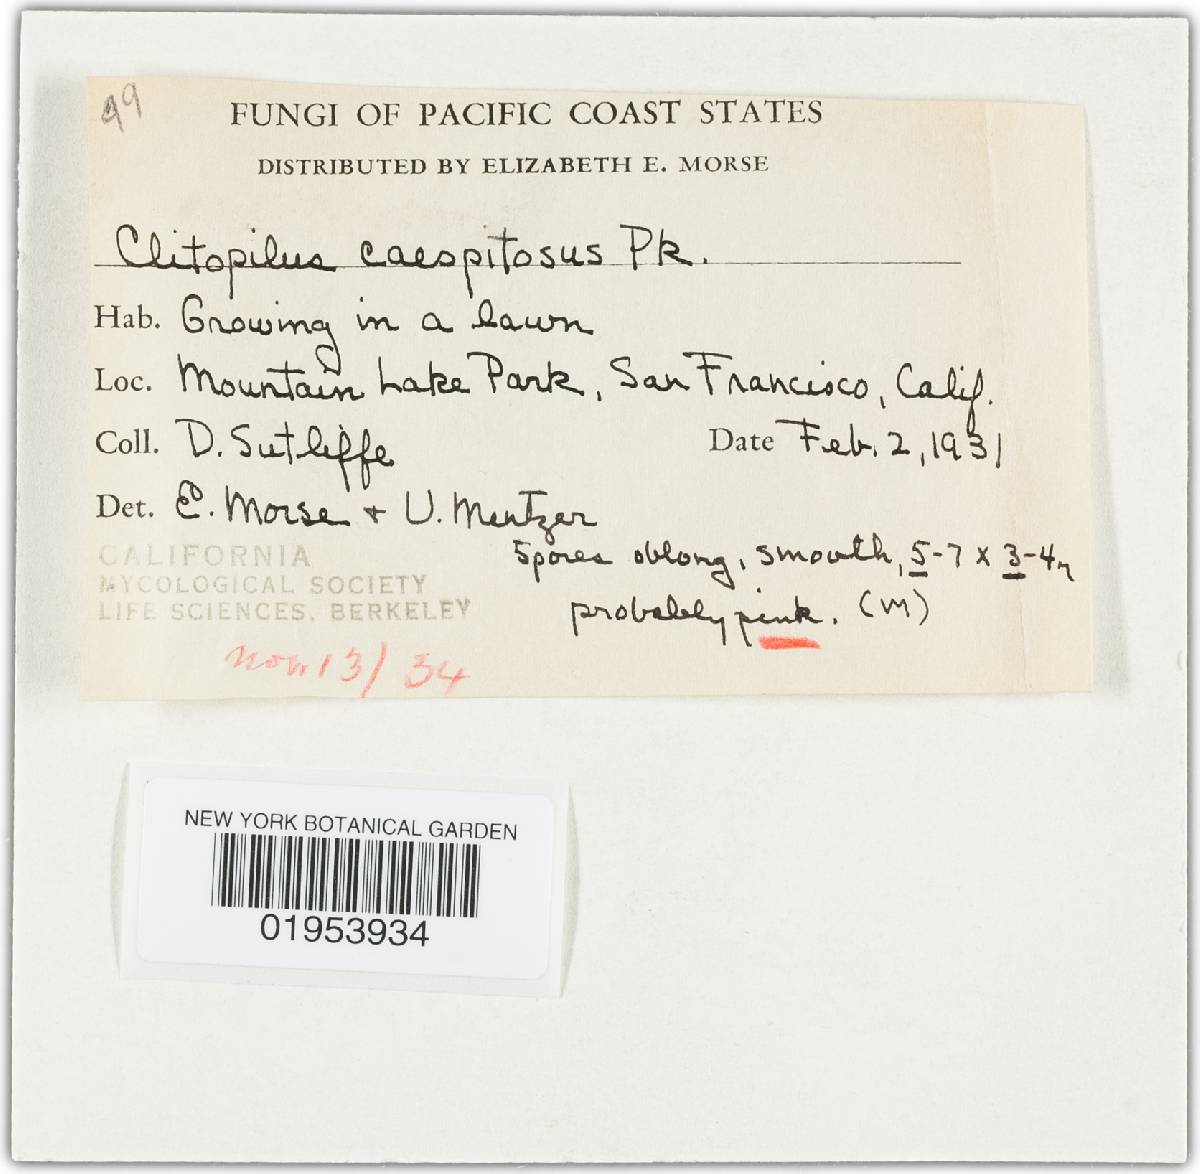 99
FUNGI OF PACIFIC COAST STATES
DISTRIBUTED BY ELIZABETH E. MORSE
Clitopilus caespitosus Pk.
Hab. Growing in a lawn
Loc. Mountain Lake Park, San Francisco, Calif.
Coll. D. Sutliffe Date Feb. 2, 1931
Det. E. Morse + V. Mentzer
Spores oblong, smooth, 5-7 x 3-4η
probably pink. (M)
CALIFORNIA
MYCOLOGICAL SOCIETY
LIFE SCIENCES, BERKELEY
Nov 13/34
NEW YORK BOTANICAL GARDEN
01953934